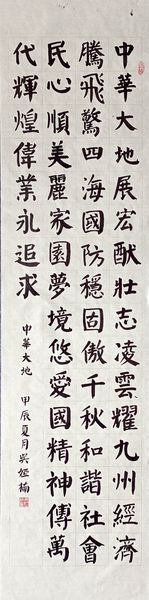 中華大地展宏猷壯志凌雲耀九州經濟
騰飛驚四海國防穩固傲千秋和諧社會
民心順美麗家園夢境悠愛國精神傳萬
代輝煌偉業永追求
中華大地 甲辰夏月吳